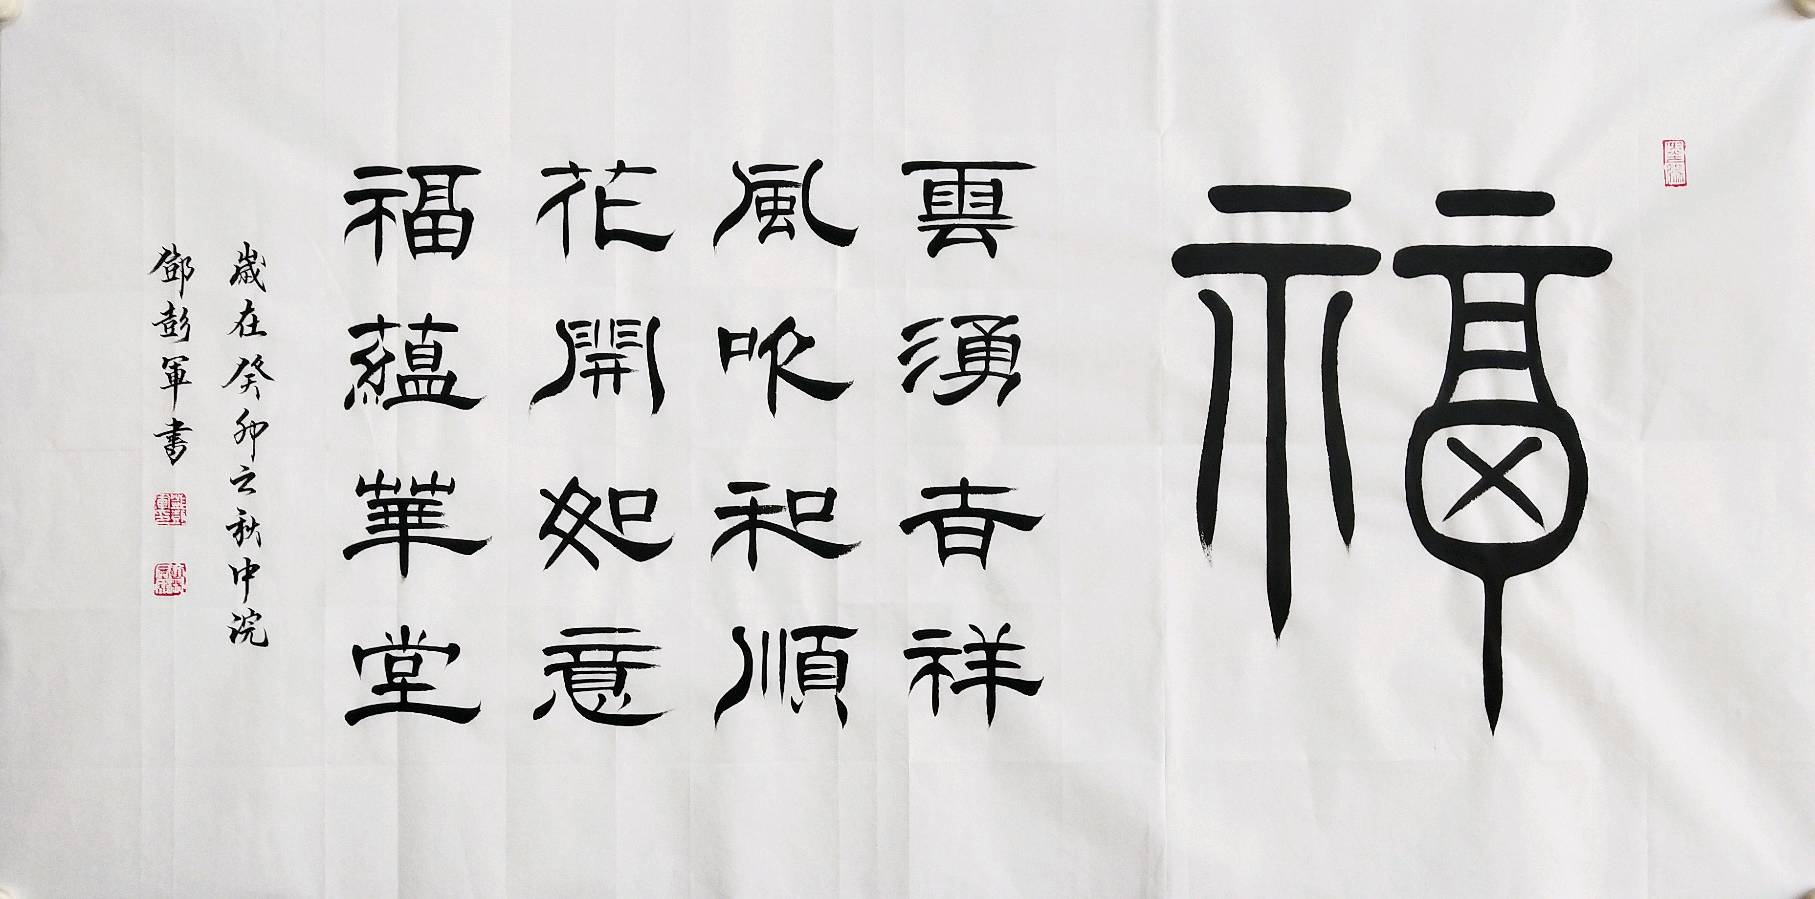 福
雲湧吉祥
風吹和順
花開如意
福蘊華堂
歲在癸卯之秋中浣
鄧彭軍书